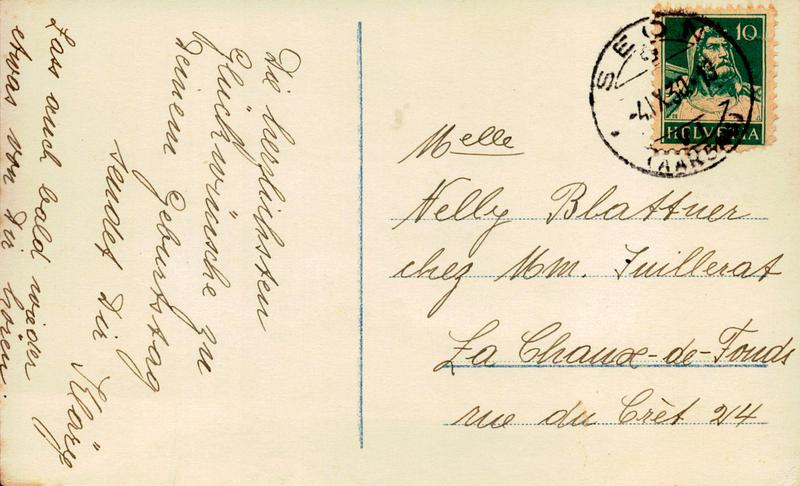 Die herzlichsten
Glückwünsche zu
Deinem Geburtstag
sendet Dir Kläry
Lass auch bald wieder
etwas von Dir hören.
SEON
-4.IX.30.-19
(AARGAU)
10
HELVETIA
Melle
Nelly Blattner
chez Mm. Juillerat
La Chaux-de-Fonds
rue du Crêt 24